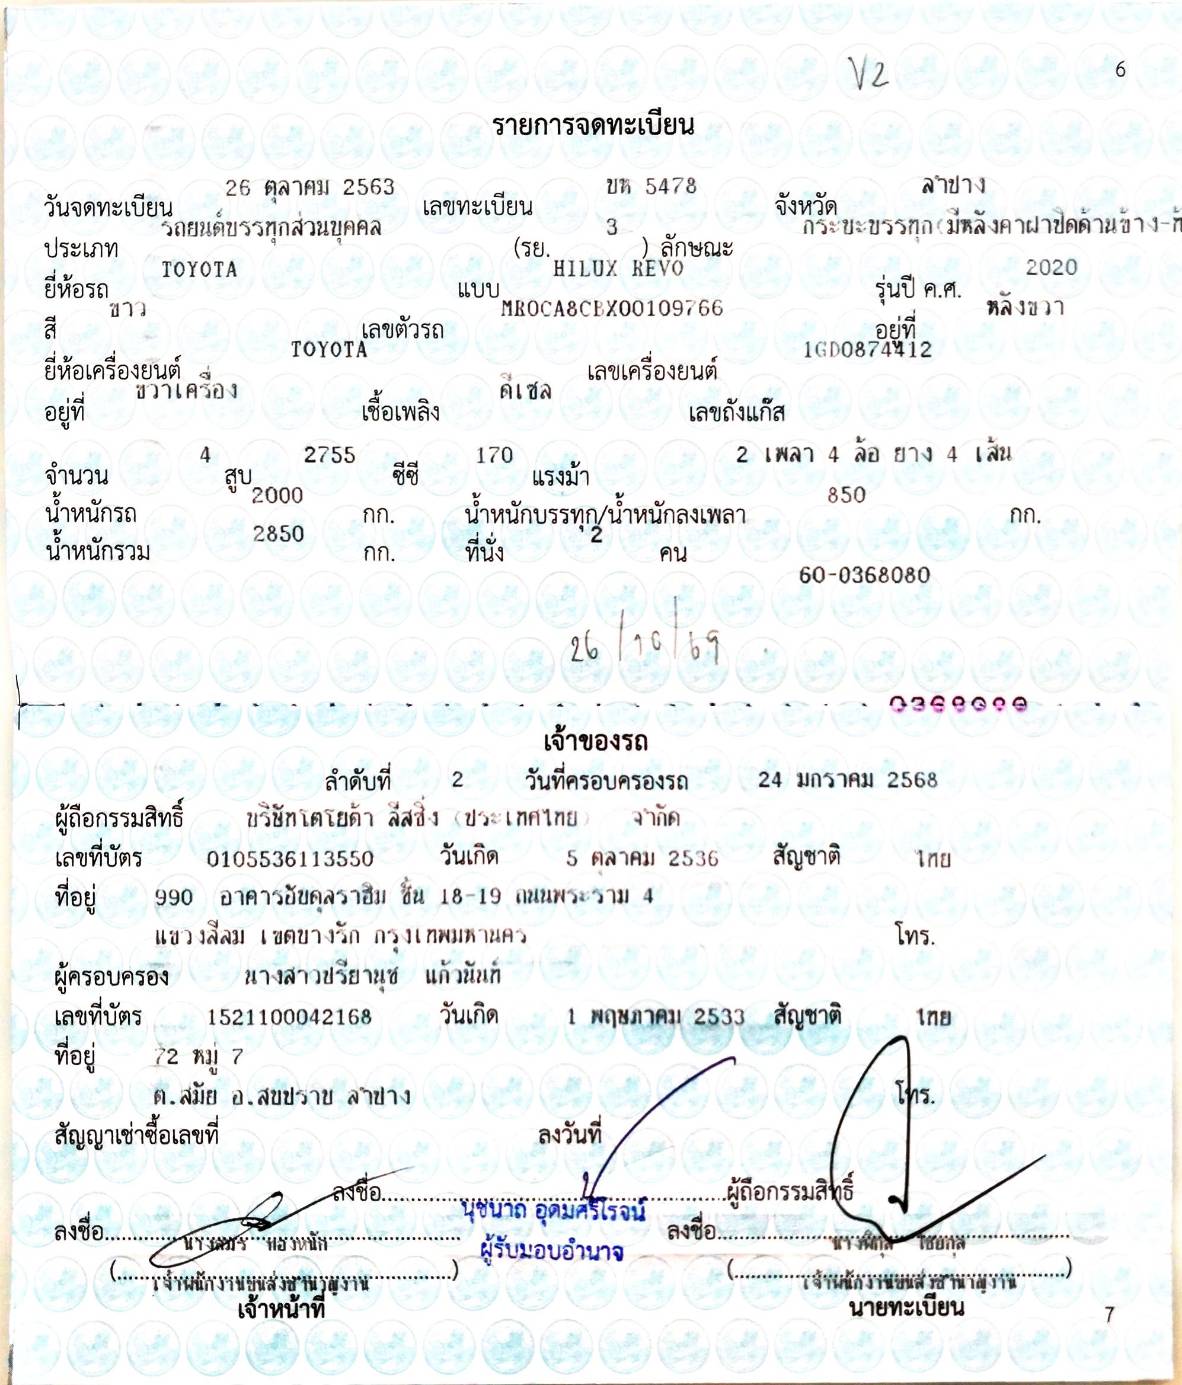 V2
6
รายการจดทะเบียน
วันจดทะเบียน 26 ตุลาคม 2563 เลขทะเบียน บห 5478 จังหวัด ลำปาง
ประเภท รถยนต์บรรทุกส่วนบุคคล (รย. 3 ) ลักษณะ กระบะบรรทุก(มีหลังคาฝาปิดด้านข้าง-ท้
ยี่ห้อรถ TOYOTA แบบ HILUX REVO รุ่นปี ค.ศ. 2020
สี ขาว เลขตัวรถ MR0CA8CBX00109766 อยู่ที่ หลังขวา
ยี่ห้อเครื่องยนต์ TOYOTA เลขเครื่องยนต์ 1GD0874412
อยู่ที่ ขวาเครื่อง เชื้อเพลิง ดีเซล เลขถังแก๊ส
จำนวน 4 สูบ 2755 ซีซี 170 แรงม้า 2 เพลา 4 ล้อ ยาง 4 เส้น
น้ำหนักรถ 2000 กก. น้ำหนักบรรทุก/น้ำหนักลงเพลา 850 กก.
น้ำหนักรวม 2850 กก. ที่นั่ง 2 คน
60-0368080
26/10/69
เจ้าของรถ
ลำดับที่ 2 วันที่ครอบครองรถ 24 มกราคม 2568
ผู้ถือกรรมสิทธิ์ บริษัทโตโยต้า ลีสซิ่ง (ประเทศไทย) จำกัด
เลขที่บัตร 0105536113550 วันเกิด 5 ตุลาคม 2536 สัญชาติ ไทย
ที่อยู่ 990 อาคารอับดุลราฮิม ชั้น 18-19 ถนนพระราม 4
แขวงสีลม เขตบางรัก กรุงเทพมหานคร โทร.
ผู้ครอบครอง นางสาวปรียานุช แก้วนันท์
เลขที่บัตร 1521100042168 วันเกิด 1 พฤษภาคม 2533 สัญชาติ ไทย
ที่อยู่ 72 หมู่ 7
ต.สมัย อ.สบปราบ ลำปาง โทร.
สัญญาเช่าซื้อเลขที่ ลงวันที่
ลงชื่อ ผู้ถือกรรมสิทธิ์
นุชนาถ อุดมศรีโรจน์
ผู้รับมอบอำนาจ
ลงชื่อ ทองหนัก ลงชื่อ
(เจ้าพนักงานขนส่งชำนาญงาน) (เจ้าพนักงานขนส่งชำนาญงาน)
เจ้าหน้าที่ นายทะเบียน
7